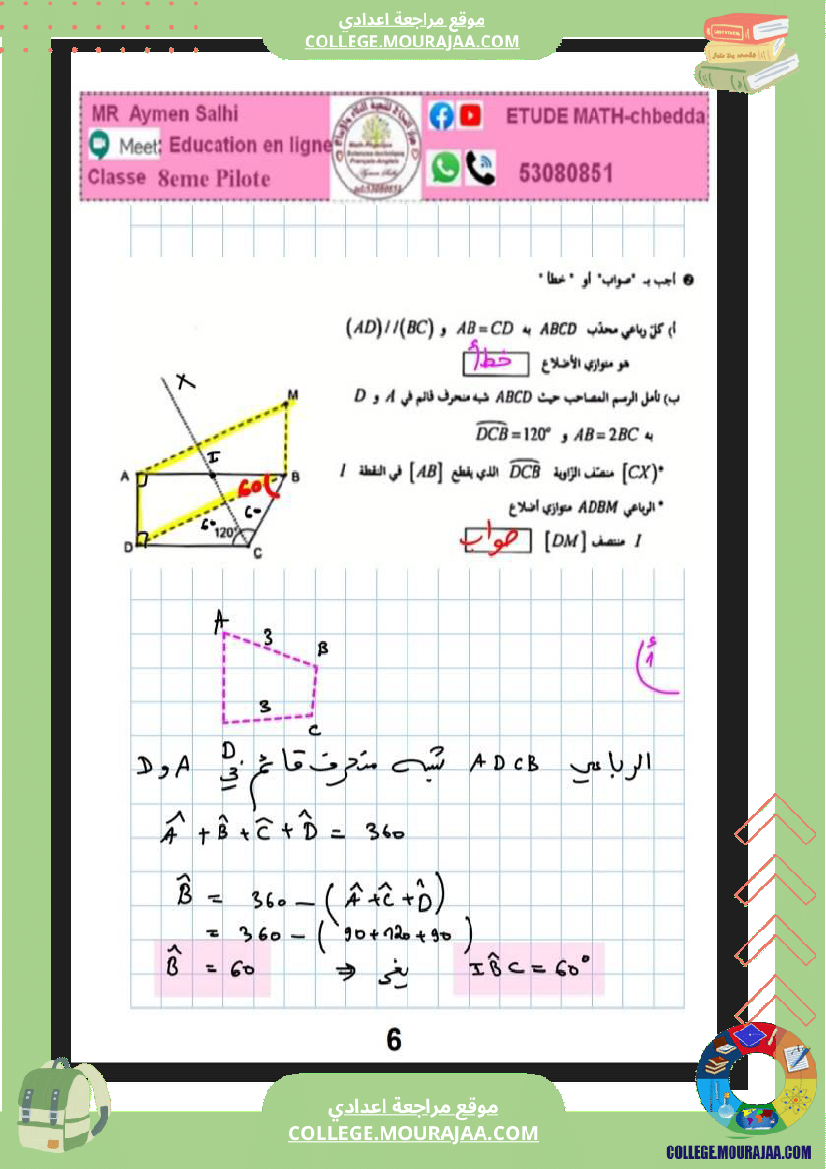 موقع مراجعة اعدادي
COLLEGE.MOURAJAA.COM
MR Aymen Salhi
Meet: Education en ligne
Classe 8eme Pilote
ETUDE MATH-chbedda
53080851
❷ أجب بـ "صواب" أو "خطأ"
أ) كلّ رباعي محدّب ABCD به AB = CD و (AD)//(BC)
هو متوازي الأضلاع خطأ
ب) تأمل الرسم المصاحب حيث ABCD شبه منحرف قائم في A و D
به AB = 2BC و DCB = 120°
*[CX) منصّف الزاوية DCB الذي يقطع [AB] في النقطة I
* الرباعي ADBM متوازي أضلاع
I منتصف [DM] صواب
X
M
I
A
B
60
60
60
120°
D
C
A
3
B
3
C
D
أ)
الرباعي ADCB شبه منحرف قائم في A و D
Â + B̂ + Ĉ + D̂ = 360
B̂ = 360 - (Â + Ĉ + D̂)
= 360 - (90 + 120 + 90)
B̂ = 60 يعني ⇒ IB̂C = 60°
6
موقع مراجعة اعدادي
COLLEGE.MOURAJAA.COM
COLLEGE.MOURAJAA.COM